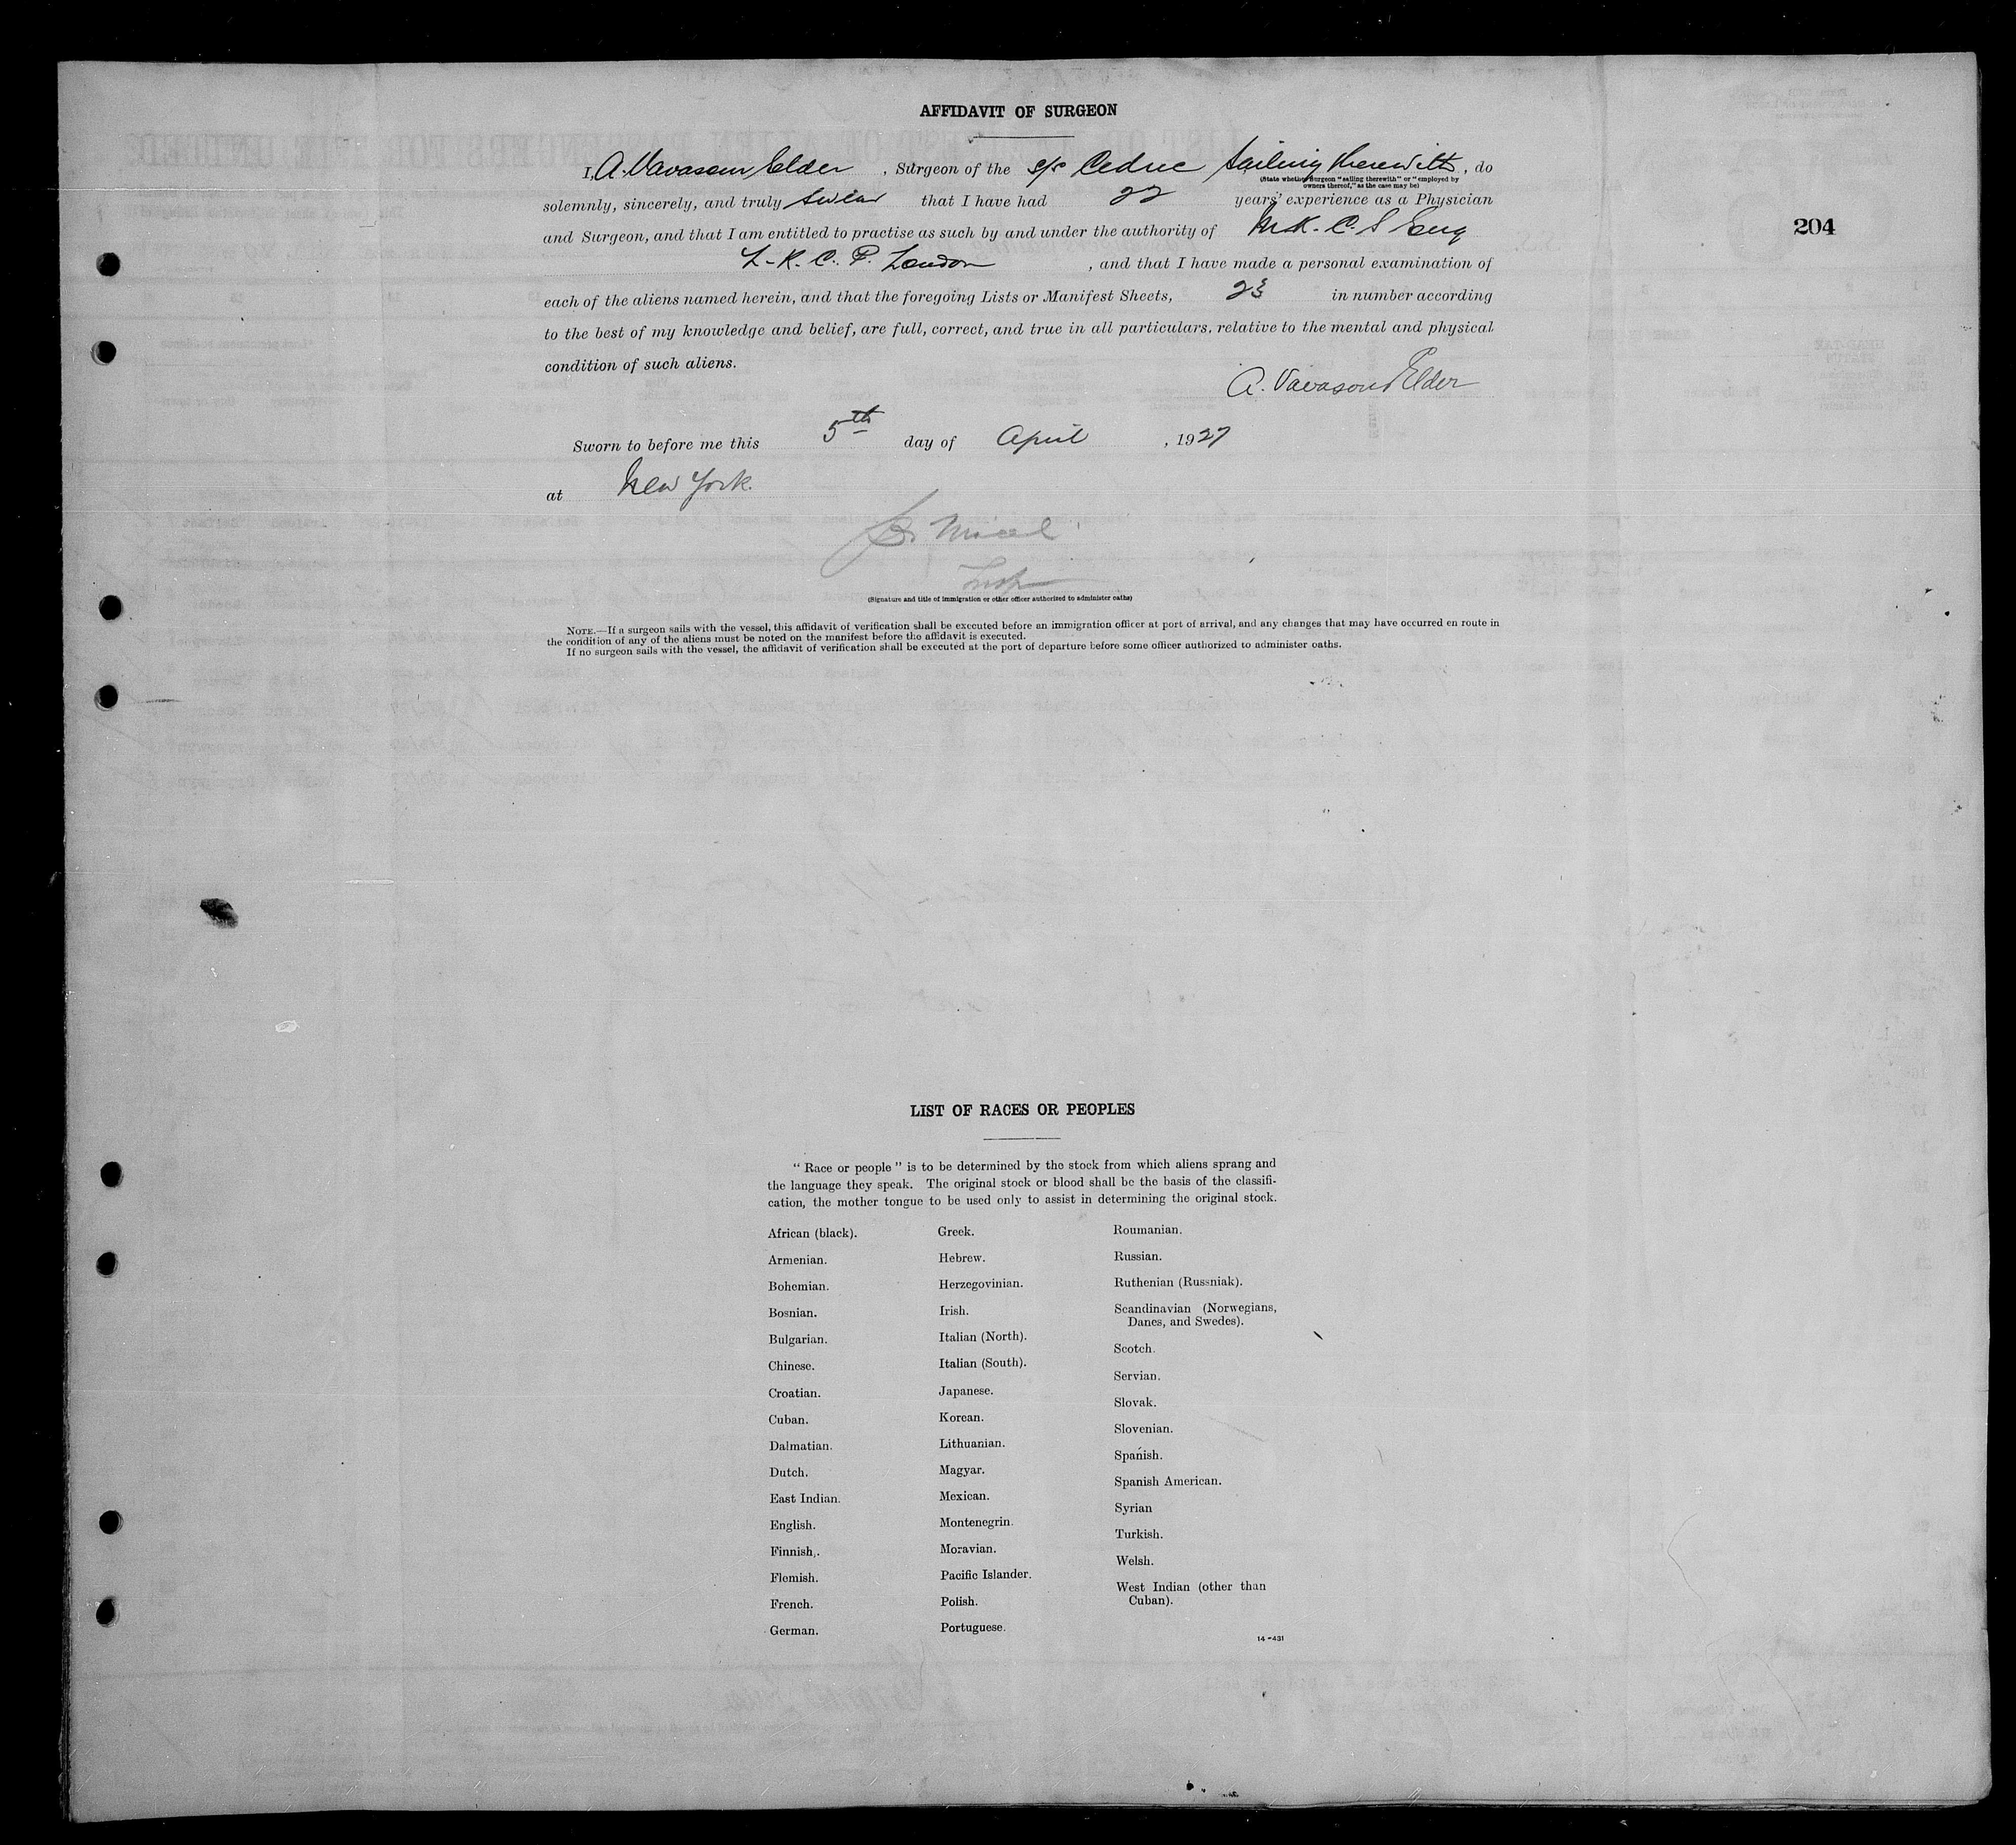 AFFIDAVIT OF SURGEON
I, A. Vavasour Elder, Surgeon of the s/s Cedric sailing therewith, do
(State whether Surgeon "sailing therewith" or "employed by
owners thereof," as the case may be)
solemnly, sincerely, and truly swear that I have had 22 years' experience as a Physician
and Surgeon, and that I am entitled to practise as such by and under the authority of M.R.C.S Eng
L.R.C.P. London, and that I have made a personal examination of
each of the aliens named herein, and that the foregoing Lists or Manifest Sheets, 23 in number according
to the best of my knowledge and belief, are full, correct, and true in all particulars, relative to the mental and physical
condition of such aliens.
A. Vavasour Elder
Sworn to before me this 5th day of April, 1927
at New York.
Insp
(Signature and title of immigration or other officer authorized to administer oaths)
NOTE.—If a surgeon sails with the vessel, this affidavit of verification shall be executed before an immigration officer at port of arrival, and any changes that may have occurred en route in
the condition of any of the aliens must be noted on the manifest before the affidavit is executed.
If no surgeon sails with the vessel, the affidavit of verification shall be executed at the port of departure before some officer authorized to administer oaths.
204
LIST OF RACES OR PEOPLES
"Race or people" is to be determined by the stock from which aliens sprang and
the language they speak. The original stock or blood shall be the basis of the classifi-
cation, the mother tongue to be used only to assist in determining the original stock.
African (black).
Armenian.
Bohemian.
Bosnian.
Bulgarian.
Chinese.
Croatian.
Cuban.
Dalmatian.
Dutch.
East Indian.
English.
Finnish.
Flemish.
French.
German.
Greek.
Hebrew.
Herzegovinian.
Irish.
Italian (North).
Italian (South).
Japanese.
Korean.
Lithuanian.
Magyar.
Mexican.
Montenegrin.
Moravian.
Pacific Islander.
Polish.
Portuguese.
Roumanian.
Russian.
Ruthenian (Russniak).
Scandinavian (Norwegians,
Danes, and Swedes).
Scotch.
Servian.
Slovak.
Slovenian.
Spanish.
Spanish American.
Syrian
Turkish.
Welsh.
West Indian (other than
Cuban).
14-431